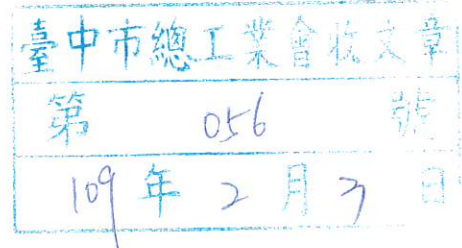 臺中市總工業會收文章
第 056 號
109 年 2 月 3 日